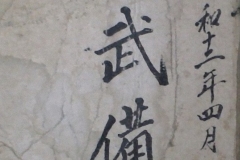 和十二年四月
武備